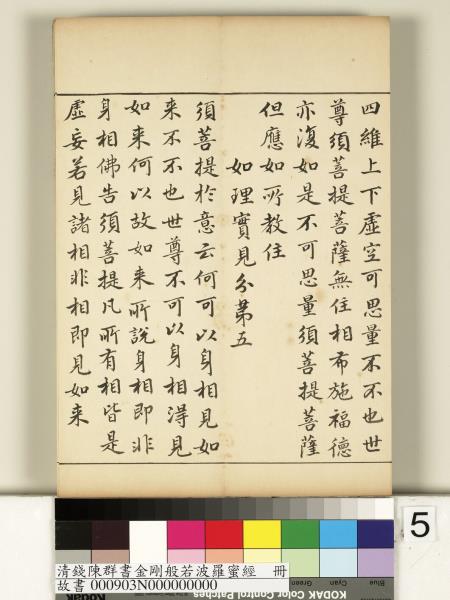 四維上下虛空可思量不不也世
尊須菩提菩薩無住相布施福德
亦復如是不可思量須菩提菩薩
但應如所教住
如理實見分第五
須菩提於意云何可以身相見如
来不不也世尊不可以身相得見
如来何以故如来所說身相即非
身相佛告須菩提凡所有相皆是
虛妄若見諸相非相即見如来
5
清錢陳群書金剛般若波羅蜜經 冊
故書 000903N000000000
Blue Cyan Green
Kodak
KODAK Color Control Patches